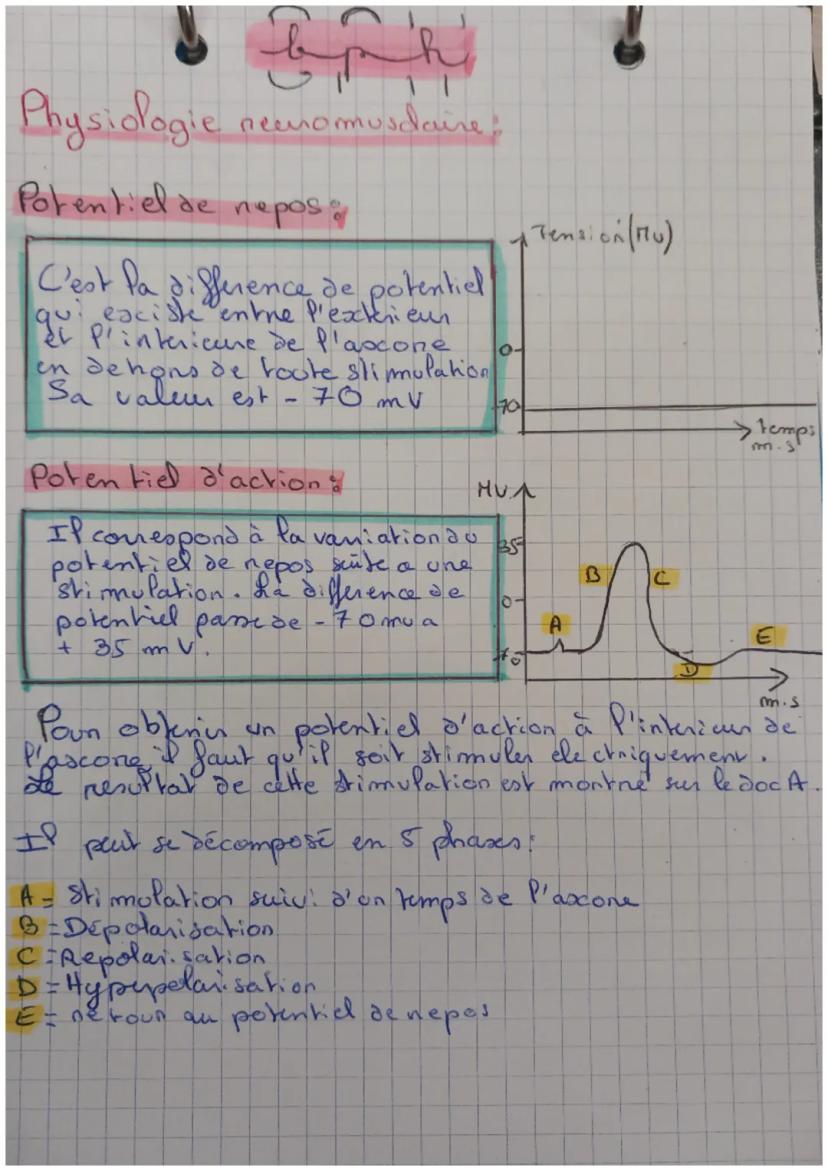 bph
Physiologie neuromusclaire:
Potentiel de repos:
C'est la difference de potentiel
qui esciste entre l'exterieur
et l'interieure de l'ascone
en dehors de toute stimulation
Sa valeur est - 70 mV
Tension (MV)
0
-70
temps
m.s
Potentiel d'action:
Il correspond à la variation du
potentiel de repos suite a une
stimulation. La difference de
potentiel passe de - 70 mv a
+ 35 mV.
MV
35
0
-70
A
B
C
D
E
m.s
Pour obtenir un potentiel d'action à l'interieur de
l'ascone il faut qu'il soit stimuler electriquement.
Le resultat de cette stimulation est montré sur le doc A.
Il peut se décomposé en 5 phases:
A = Stimulation suivi d'un temps de l'axone
B = Dépolarisation
C = Repolarisation
D = Hyperpolarisation
E = retour au potentiel de repos